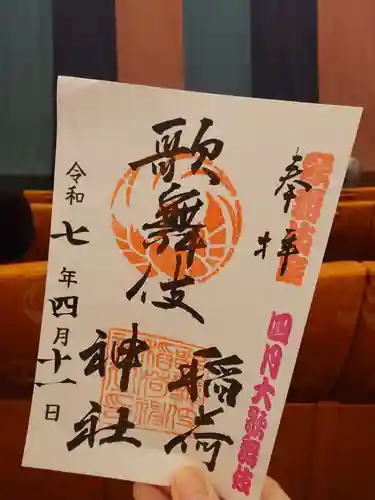 歌舞伎座
奉拝
四月大歌舞伎
歌舞伎
稲荷
神社
令和七年四月十一日